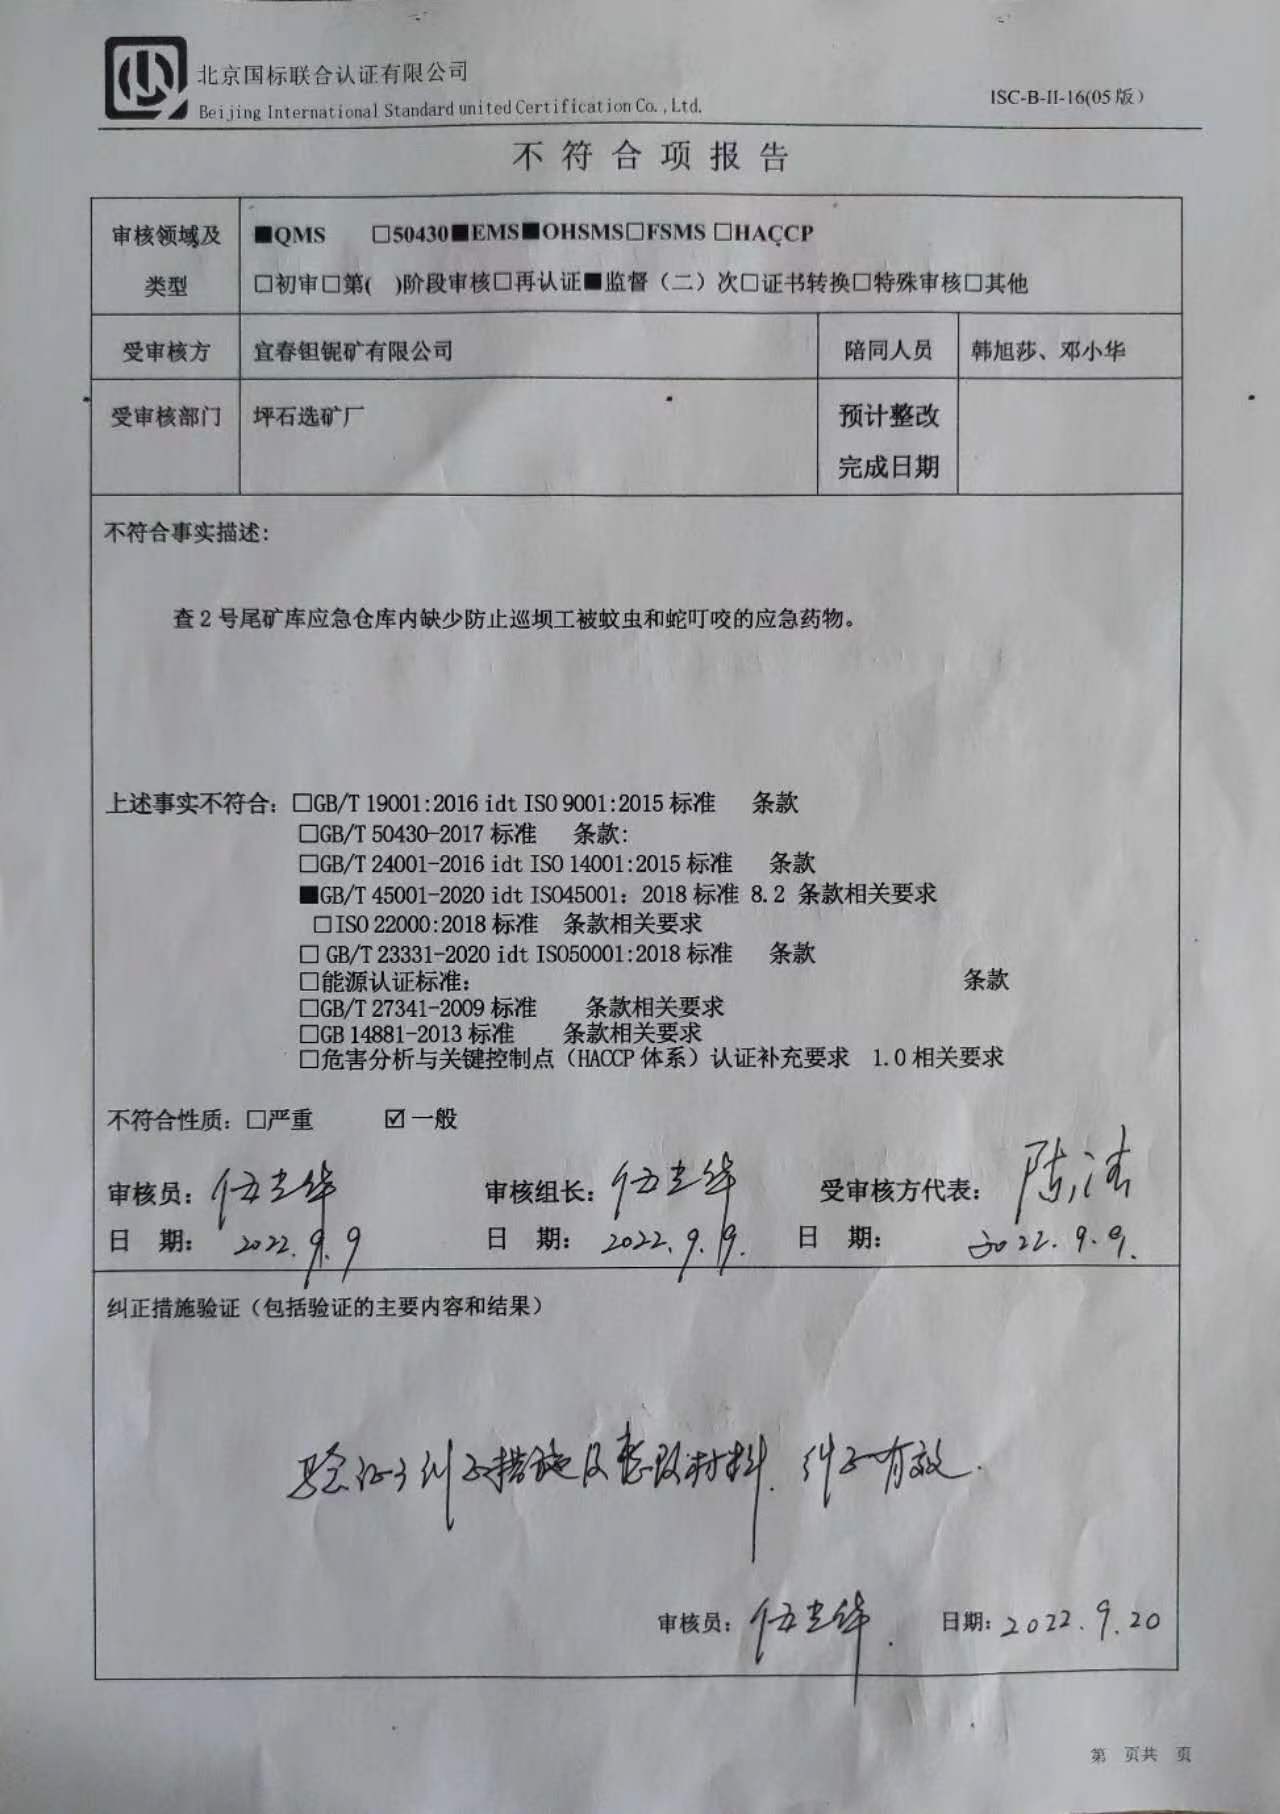 北京国标联合认证有限公司
Beijing International Standard united Certification Co.,Ltd.
ISC-B-II-16(05版)
不符合项报告
审核领域及类型
■QMS □50430■EMS■OHSMS□FSMS □HACCP
□初审□第( )阶段审核□再认证■监督（二）次□证书转换□特殊审核□其他
受审核方 宜春钽铌矿有限公司 陪同人员 韩旭莎、邓小华
受审核部门 坪石选矿厂 预计整改完成日期
不符合事实描述:
查2号尾矿库应急仓库内缺少防止巡坝工被蚊虫和蛇叮咬的应急药物。
上述事实不符合: □GB/T 19001:2016 idt ISO 9001:2015 标准 条款
□GB/T 50430-2017 标准 条款:
□GB/T 24001-2016 idt ISO 14001:2015 标准 条款
■GB/T 45001-2020 idt ISO45001: 2018 标准 8.2 条款相关要求
□ISO 22000:2018 标准 条款相关要求
□ GB/T 23331-2020 idt ISO50001:2018 标准 条款
□能源认证标准: 条款
□GB/T 27341-2009 标准 条款相关要求
□GB 14881-2013 标准 条款相关要求
□危害分析与关键控制点（HACCP 体系）认证补充要求 1.0 相关要求
不符合性质: □严重 ☑一般
审核员: 审核组长: 受审核方代表:
日 期: 2022.9.9 日 期: 2022.9.9. 日 期: 2022.9.9.
纠正措施验证（包括验证的主要内容和结果）
验证了纠正措施及整改材料, 纠正有效.
审核员: 日期: 2022.9.20
第 页共 页